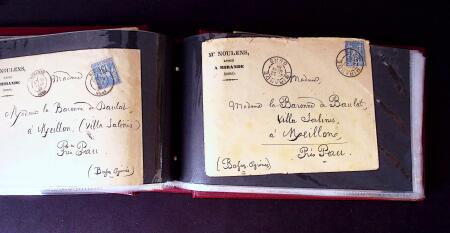 Mᵉ NOULENS,
AVOUÉ
A MIRANDE
(GERS)
Madame
Madame la Baronne de Baulat
à Meillon, (Villa Salinis)
Près Pau
(Basses Pyrénées)
Mᵉ NOULENS,
AVOUÉ
A MIRANDE
(GERS)
Madame,
Madame la Baronne de Baulat,
Villa Salinis,
à Meillon,
Près Pau.
(Basses Pyrénées)